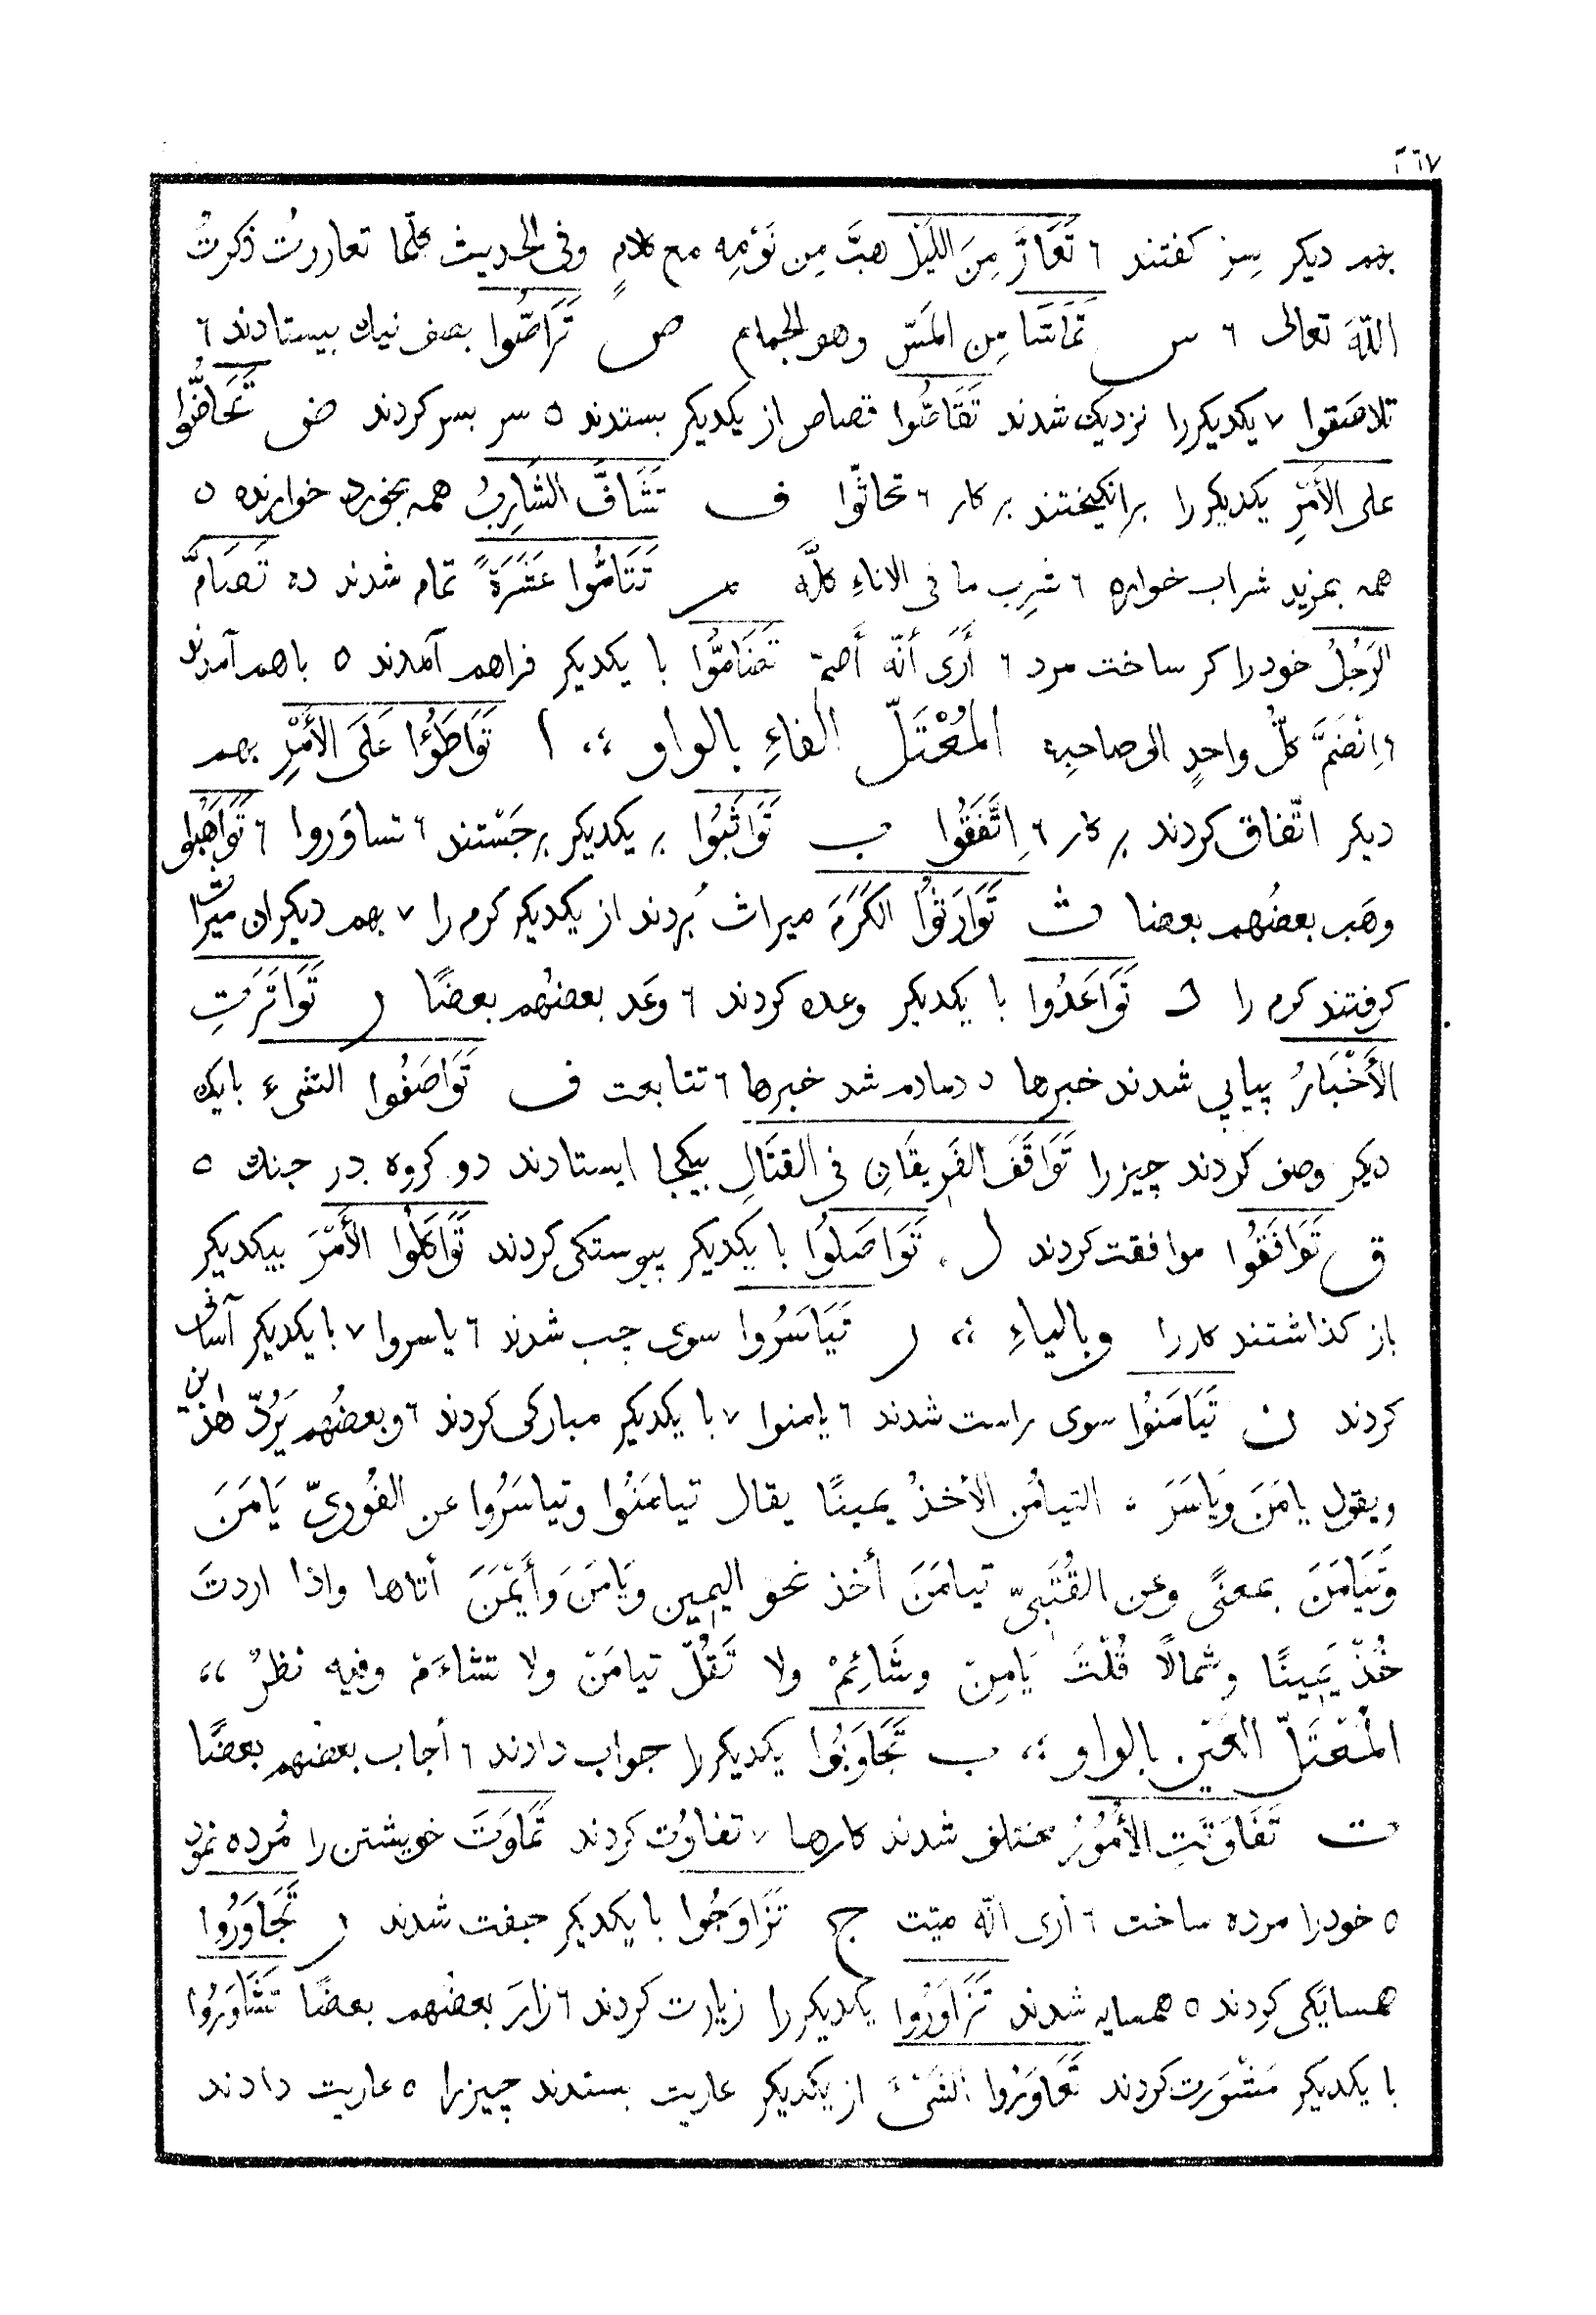 ٢٦٧
بهم ديكر سِز كفتند ٦ تَعَارَّ مِنَ اللَّيْلِ هبَّ مِن نَوْمِه مع كلامٍ وفى الحديث كلّما تعاررتُ ذكرتُ
اللّهَ تعالى ٦ س تَمَاسَّا مِن المَسّ وهو الجماع ص تَرَاصُّوا بصف نيك بيستادند ٦
تلاصَقوا ٧ يكديكررا نزديك شدند تَقَاصُّوا قصاص از يكديكر بستدند ٥ سر بسر كردند ض تَحَاضُّوا
على الأَمْرِ يكديكررا برانكيختند بر كار ٦ تحاثّوا ف تَشَافَّ الشَّارِبُ همه بخورد خوارنده ٥
همه بمزيد شراب خواره ٦ شرِب ما فى الاناءِ كلَّه م تَتَامُّوا عَشَرَةً تمام شدند ده تَصَامَّ
الرَجُلُ خودرا كر ساخت مرد ٦ أَرَى أَنّه أَصمّ تَضَامُّوا با يكديكر فراهم آمدند ٥ باهم آمدند
٦ اِنْضَمَّ كلُّ واحدٍ الى صاحبِه المُعْتَلّ الفاءِ بالواو ؛، ا تَوَاطَؤُا عَلَى الأَمْرِ بهم
ديكر اتّفاق كردند بر كار ٦ اِتَّفَقُوا ب تَوَاثَبُوا بر يكديكر برجَسْتند ٦ تساوَروا ٦ تَوَاهَبُوا
وهَب بعضُهم بعضا ث تَوَارَثُوا الكَرَمَ ميراث بُردند از يكديكر كرم را ٧ بهم ديكران ميراث
كرفتند كرم را د تَوَاعَدُوا با يكديكر وعده كردند ٦ وعَد بعضُهم بعضًا ر تَوَاتَرَتِ
الأَخْبَارُ پياپي شدند خبرها ٥ دمادم شد خبرها ٦ تتابعت ف تَوَاصَفُوا الشىء بايك
ديكر وصف كردند چيزرا تَوَاقَفَ الفَرِيقَانِ فى القتَالِ بيكجا ايستادند دو كروه در جنك ٥
ق تَوَافَقُوا موافقت كردند ل تَوَاصَلُوا با يكديكر پيوستكى كردند تَوَاكَلُوا الأَمْرَ بيكديكر
باز كذاشتند كاررا وبالياءِ ؛، ر تَيَاسَرُوا سوى چپ شدند ٦ ياسروا ٧ با يكديكر آسانى
كردند ن تَيَامَنُوا سوى راست شدند ٦ يامنوا ٧ با يكديكر مباركى كردند ٦ وبعضُهم يَرُدّ هذين
ويقول يامَنَ وَيَاسَرَ ؛ التيامُن الأخذُ يمينًا يقال تيامَنُوا وتياسَرُوا عن الغُورىّ يَامَنَ
وَتَيَامَنَ بمعنًى وعن القُتَبىّ تيامَنَ أخذ نحو اليمين وَيَامَنَ وَأَيْمَنَ أتاها واذا اردتَ
خُذْ يَمِينًا وشمالًا قُلْتَ يَامِنْ وشَائِمْ ولا تَقُلْ تيامَنْ ولا تشاءَمْ وفيه نظرٌ ،،
المُعْتَلّ العَيْن بالواو ؛، ب تَجَاوَبُوا يكديكررا جواب دادند ٦ أجاب بعضُهم بعضًا
ت تَفَاوَتَتِ الأُمُورُ مختلف شدند كارها ٧ تفاوُت كردند تَمَاوَتَ خويشتن را مُرده نمود
٥ خودرا مرده ساخت ٦ أرى انّه ميّت ج تَزَاوَجُوا با يكديكر جفت شدند ر تَجَاوَرُوا
همسايكى كردند ٥ همسايه شدند تَزَاوَرُوا يكديكررا زيارت كردند ٦ زارَ بعضُهم بعضًا تَشَاوَرُوا
با يكديكر مَشْوَرت كردند تَعَاوَرُوا الشَىْءَ از يكديكر عاريت بستدند چيزرا ٥ عاريت دادند